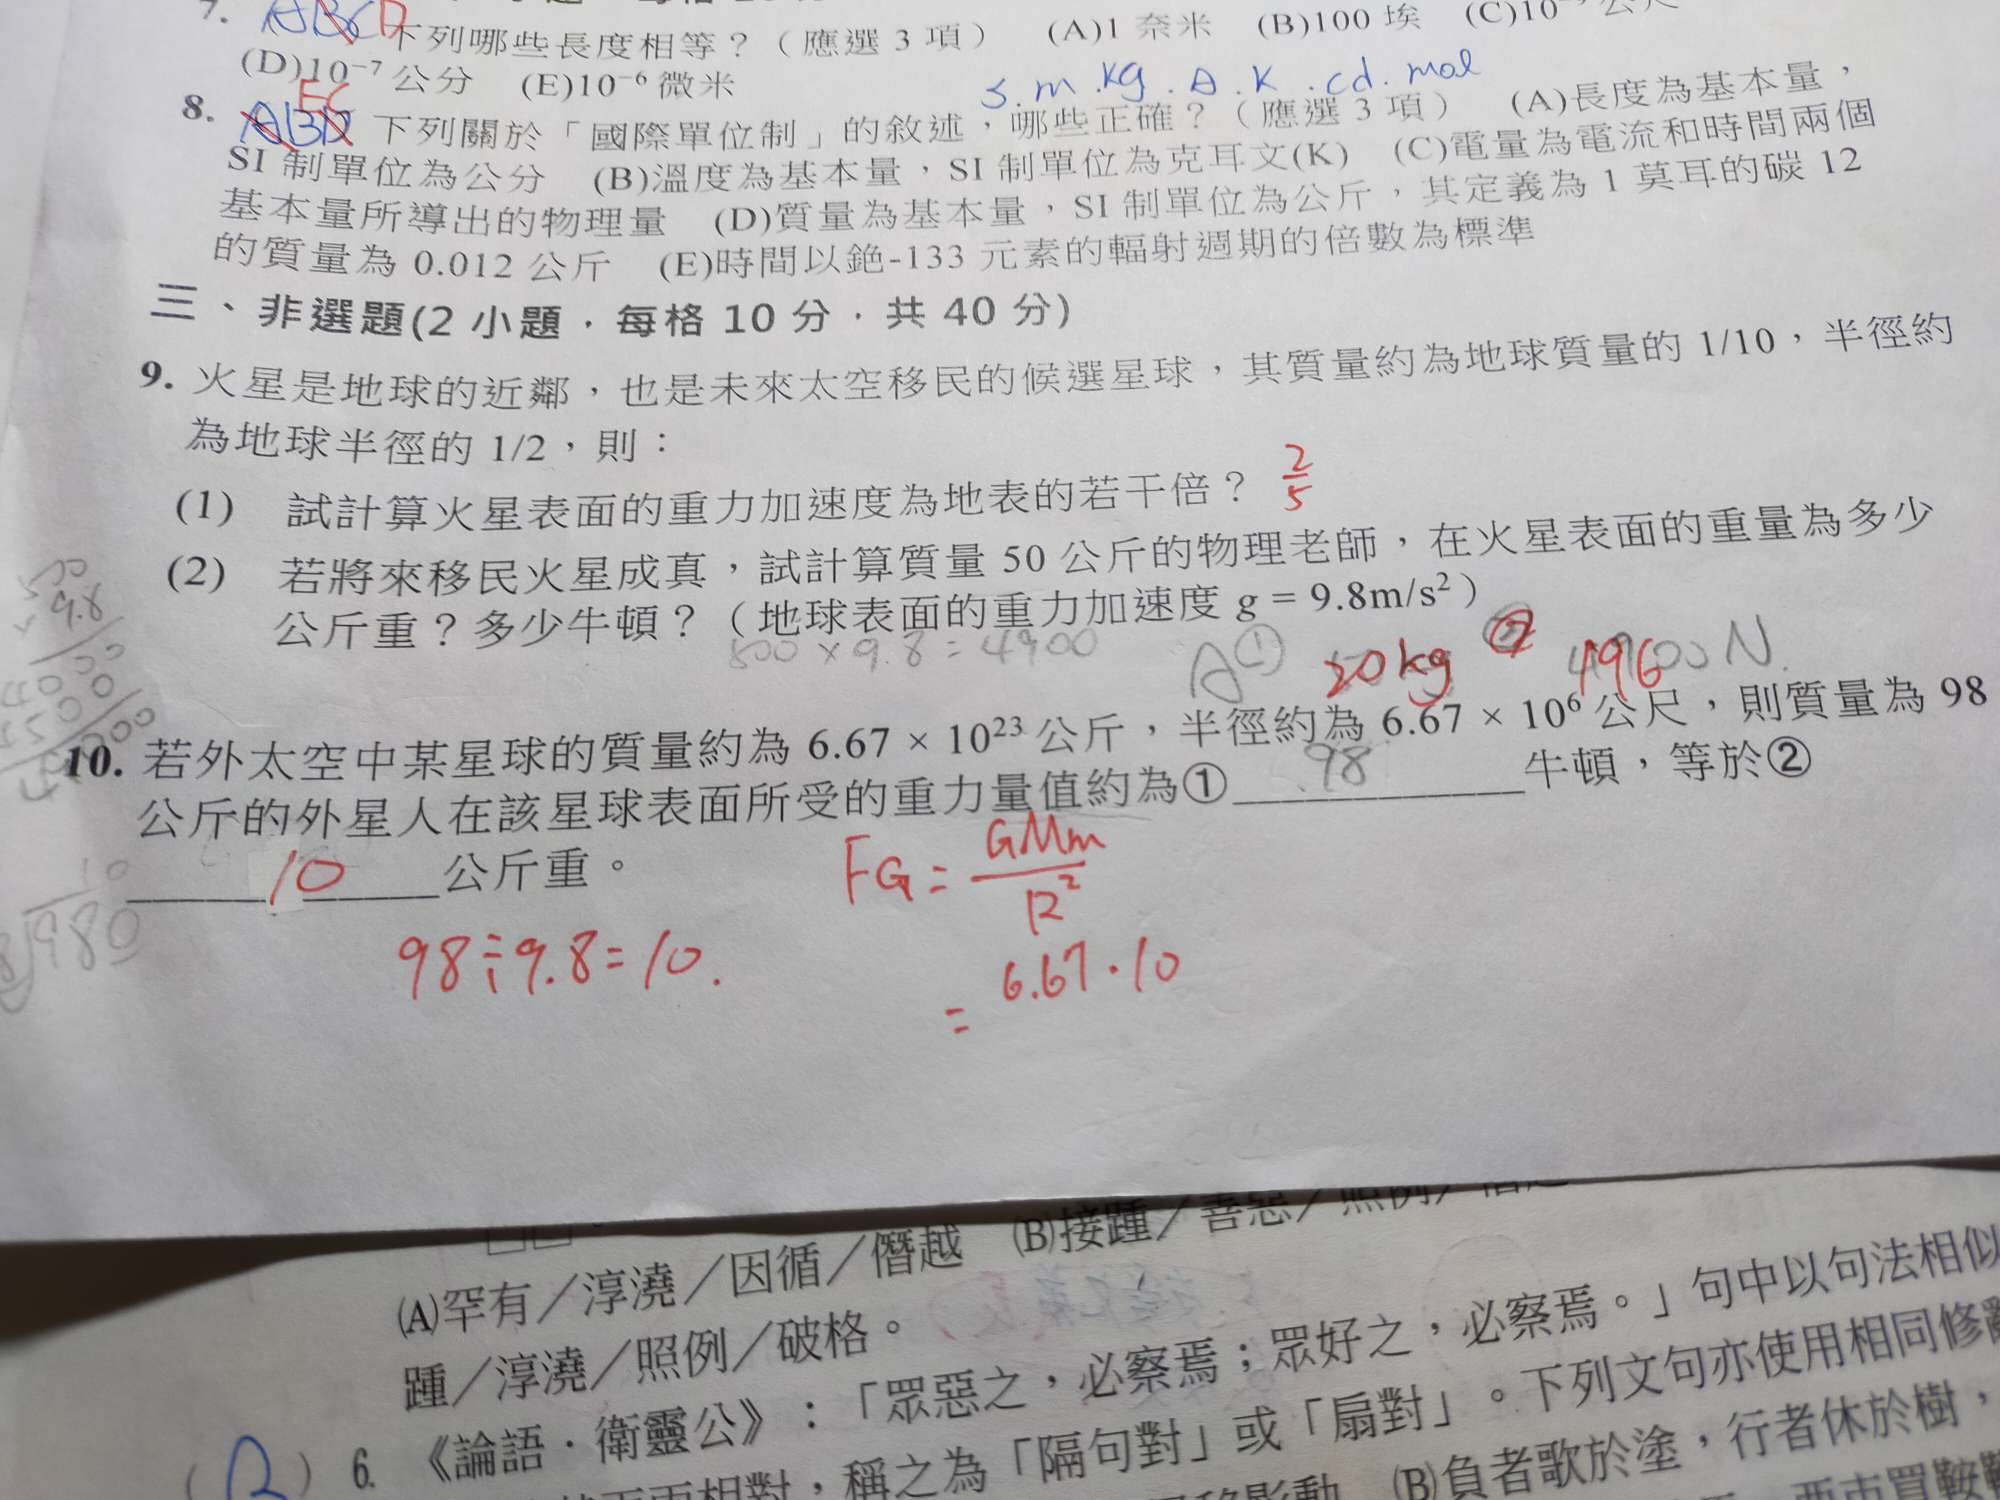 7. ABCD 下列哪些長度相等？（應選 3 項） (A)1 奈米 (B)100 埃
(D)10⁻⁷ 公分 (E)10⁻⁶ 微米
s.m.kg.A.K.cd.mol
8. ABD 下列關於「國際單位制」的敘述，哪些正確？（應選 3 項） (A)長度為基本量，
SI 制單位為公分 (B)溫度為基本量，SI 制單位為克耳文(K) (C)電量為電流和時間兩個
基本量所導出的物理量 (D)質量為基本量，SI 制單位為公斤，其定義為 1 莫耳的碳 12
的質量為 0.012 公斤 (E)時間以銫-133 元素的輻射週期的倍數為標準
三、非選題(2 小題，每格 10 分，共 40 分)
9. 火星是地球的近鄰，也是未來太空移民的候選星球，其質量約為地球質量的 1/10，半徑約
為地球半徑的 1/2，則：
(1) 試計算火星表面的重力加速度為地表的若干倍？ 2/5
(2) 若將來移民火星成真，試計算質量 50 公斤的物理老師，在火星表面的重量為多少
公斤重？多少牛頓？（地球表面的重力加速度 g = 9.8m/s²）
500 × 9.8 = 4900
A① 20kg ② 196 N
10. 若外太空中某星球的質量約為 6.67 × 10²³ 公斤，半徑約為 6.67 × 10⁶ 公尺，則質量為 98
公斤的外星人在該星球表面所受的重力量值約為① 98 牛頓，等於②
10 公斤重。
FG = GMm/R²
98÷9.8=10.
= 6.67·10
(A)罕有／淳澆／因循／僭越 (B)接踵／善惡／照例／
踵／淳澆／照例／破格。
6. 《論語．衛靈公》：「眾惡之，必察焉；眾好之，必察焉。」句中以句法相似
相對，稱之為「隔句對」或「扇對」。下列文句亦使用相同修
(B)負者歌於塗，行者休於樹，